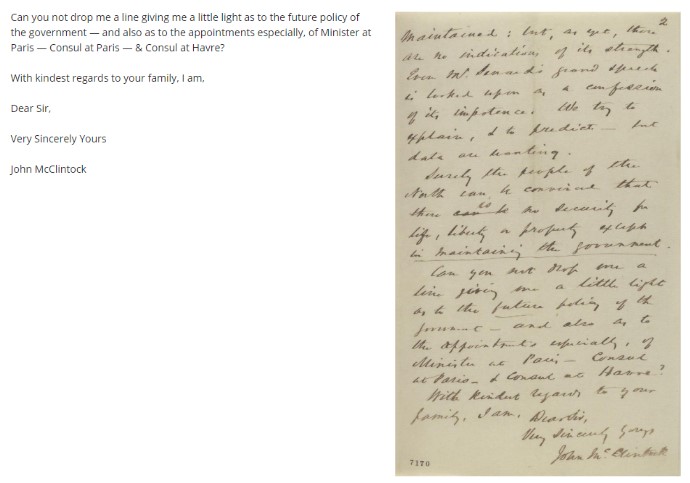 Can you not drop me a line giving me a little light as to the future policy of
the government — and also as to the appointments especially, of Minister at
Paris — Consul at Paris — & Consul at Havre?
With kindest regards to your family, I am,
Dear Sir,
Very Sincerely Yours
John McClintock
2
Maintained; but, as yet, there
are no indications of its strength.
Even Mr. Seward's grand speech
is looked upon as a confession
of its impotence. We try to
explain, & to predict — but
data are wanting.
Surely the people of the
North can be convinced that
there is to be no security for
life, liberty or property except
in maintaining the government.
Can you not drop me a
line giving me a little light
as to the future policy of the
government — and also as to
the appointments especially, of
Minister at Paris — Consul
at Paris — & Consul at Havre?
With kindest regards to your
family, I am, Dear Sir,
Very Sincerely Yours
John McClintock
7170